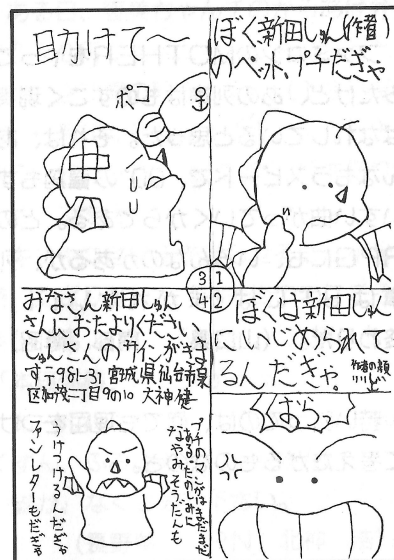 ぼく新田しゅん(作者)
のペット、プチだぎゃ
1
2
3
4
ぼくは新田しゅん
にいじめられて
るんだぎゃ。
作者の顔
ばらっ
助けて〜
ポコ
みなさん新田しゅん
さんにおたよりください
しゅんさんのサインがきま
す〒981-31 宮城県仙台市泉
区加茂二丁目9の10 大神 健
プチのマンガはまだまだ
あるよたのしみに
なやみそうだんも
うけつける だぎゃ
ファンレターもだぎゃ